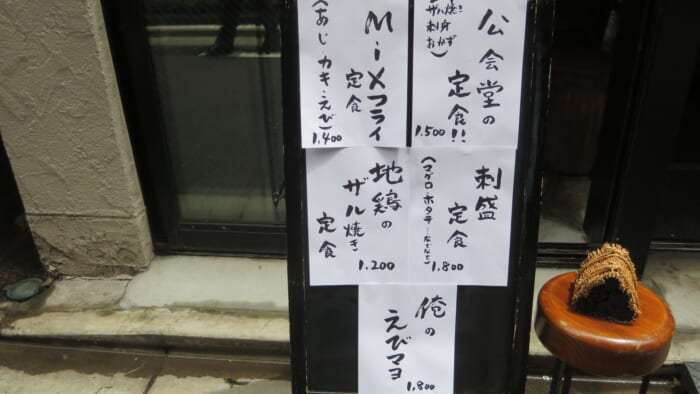 公会堂の
定食!!
ザル焼き
刺身
おかず)
1.500
Mixフライ
定食
(あじ・カキ・えび)
1.400
刺盛
定食
(マグロ・ホタテ…などなど)
1.800
地鶏の
ザル焼き
定食
1.200
俺の
えびマヨ
1.800